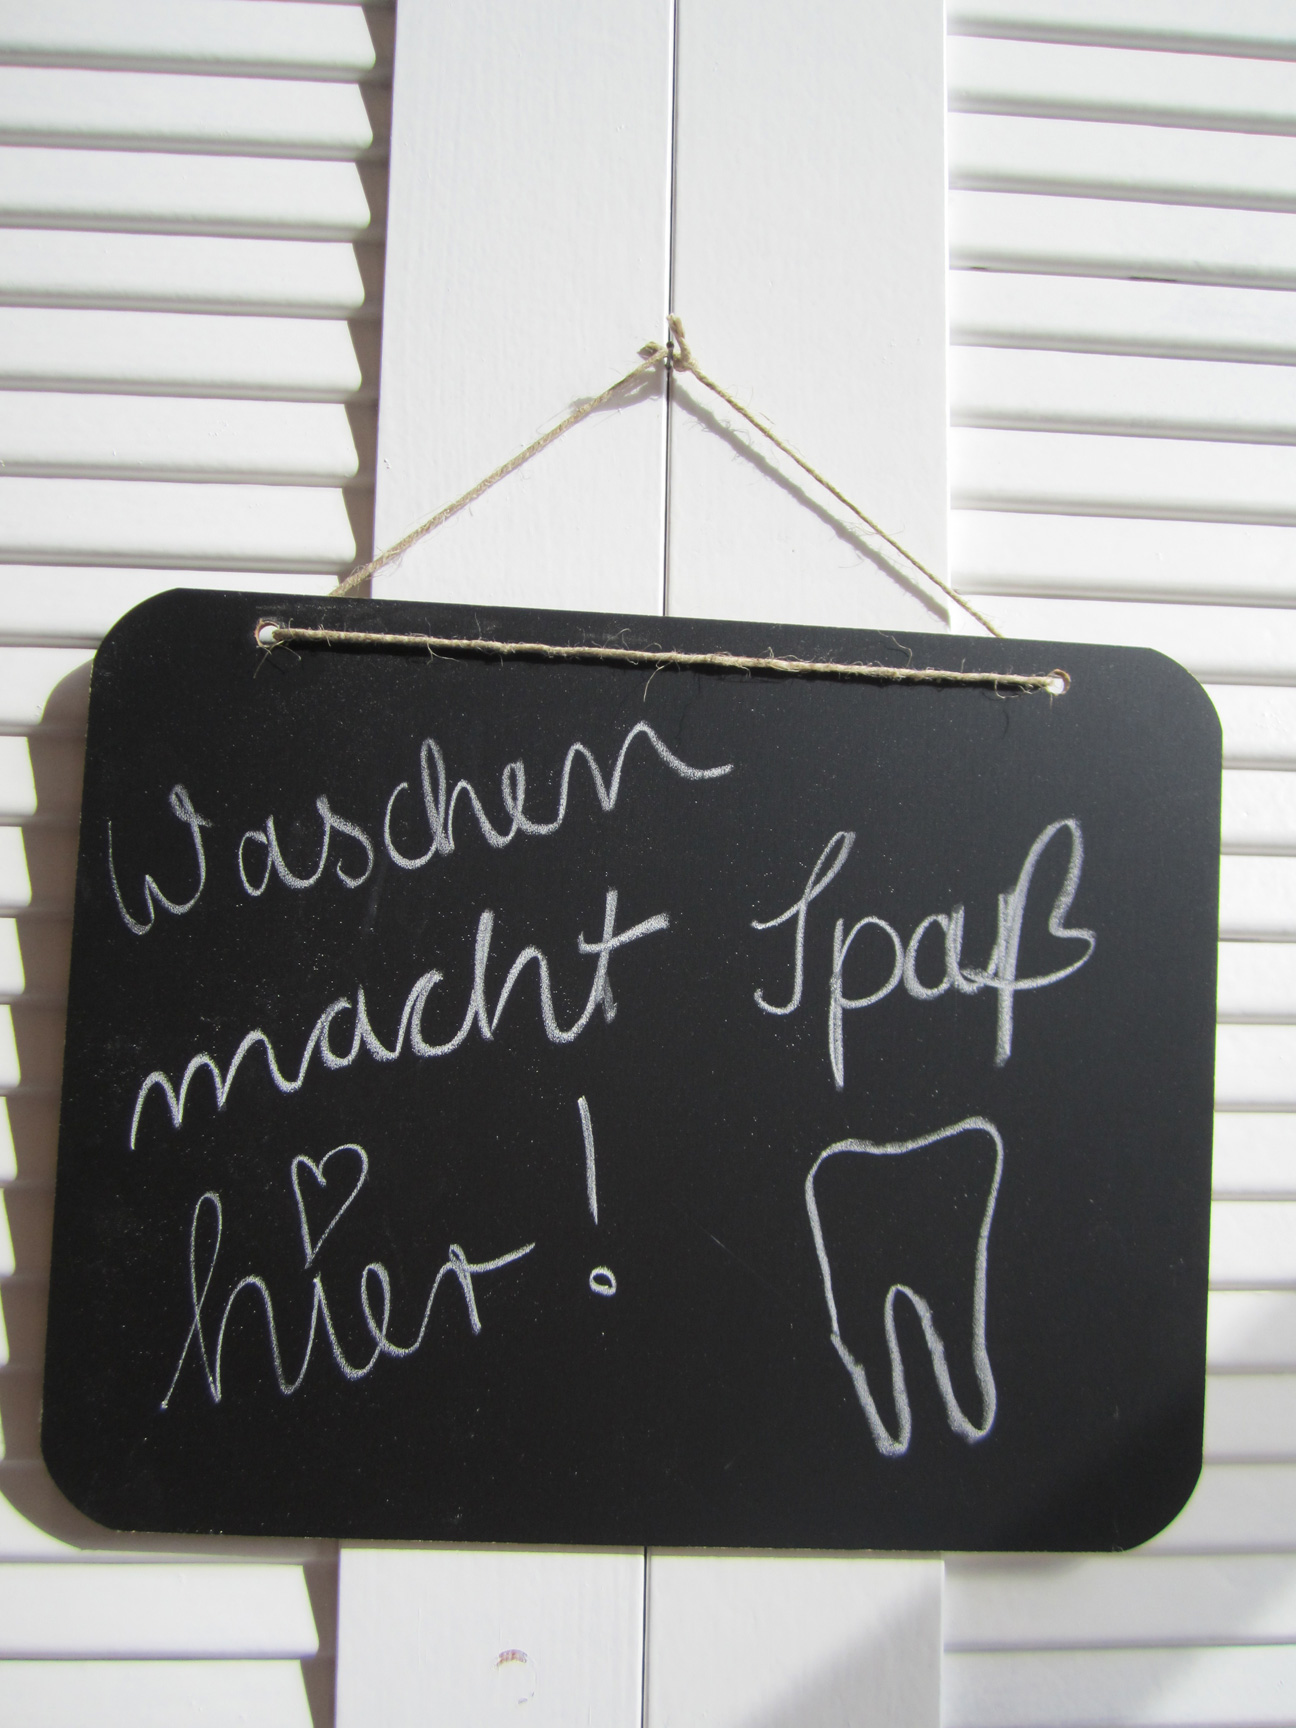 Waschen
macht Spaß
hier!